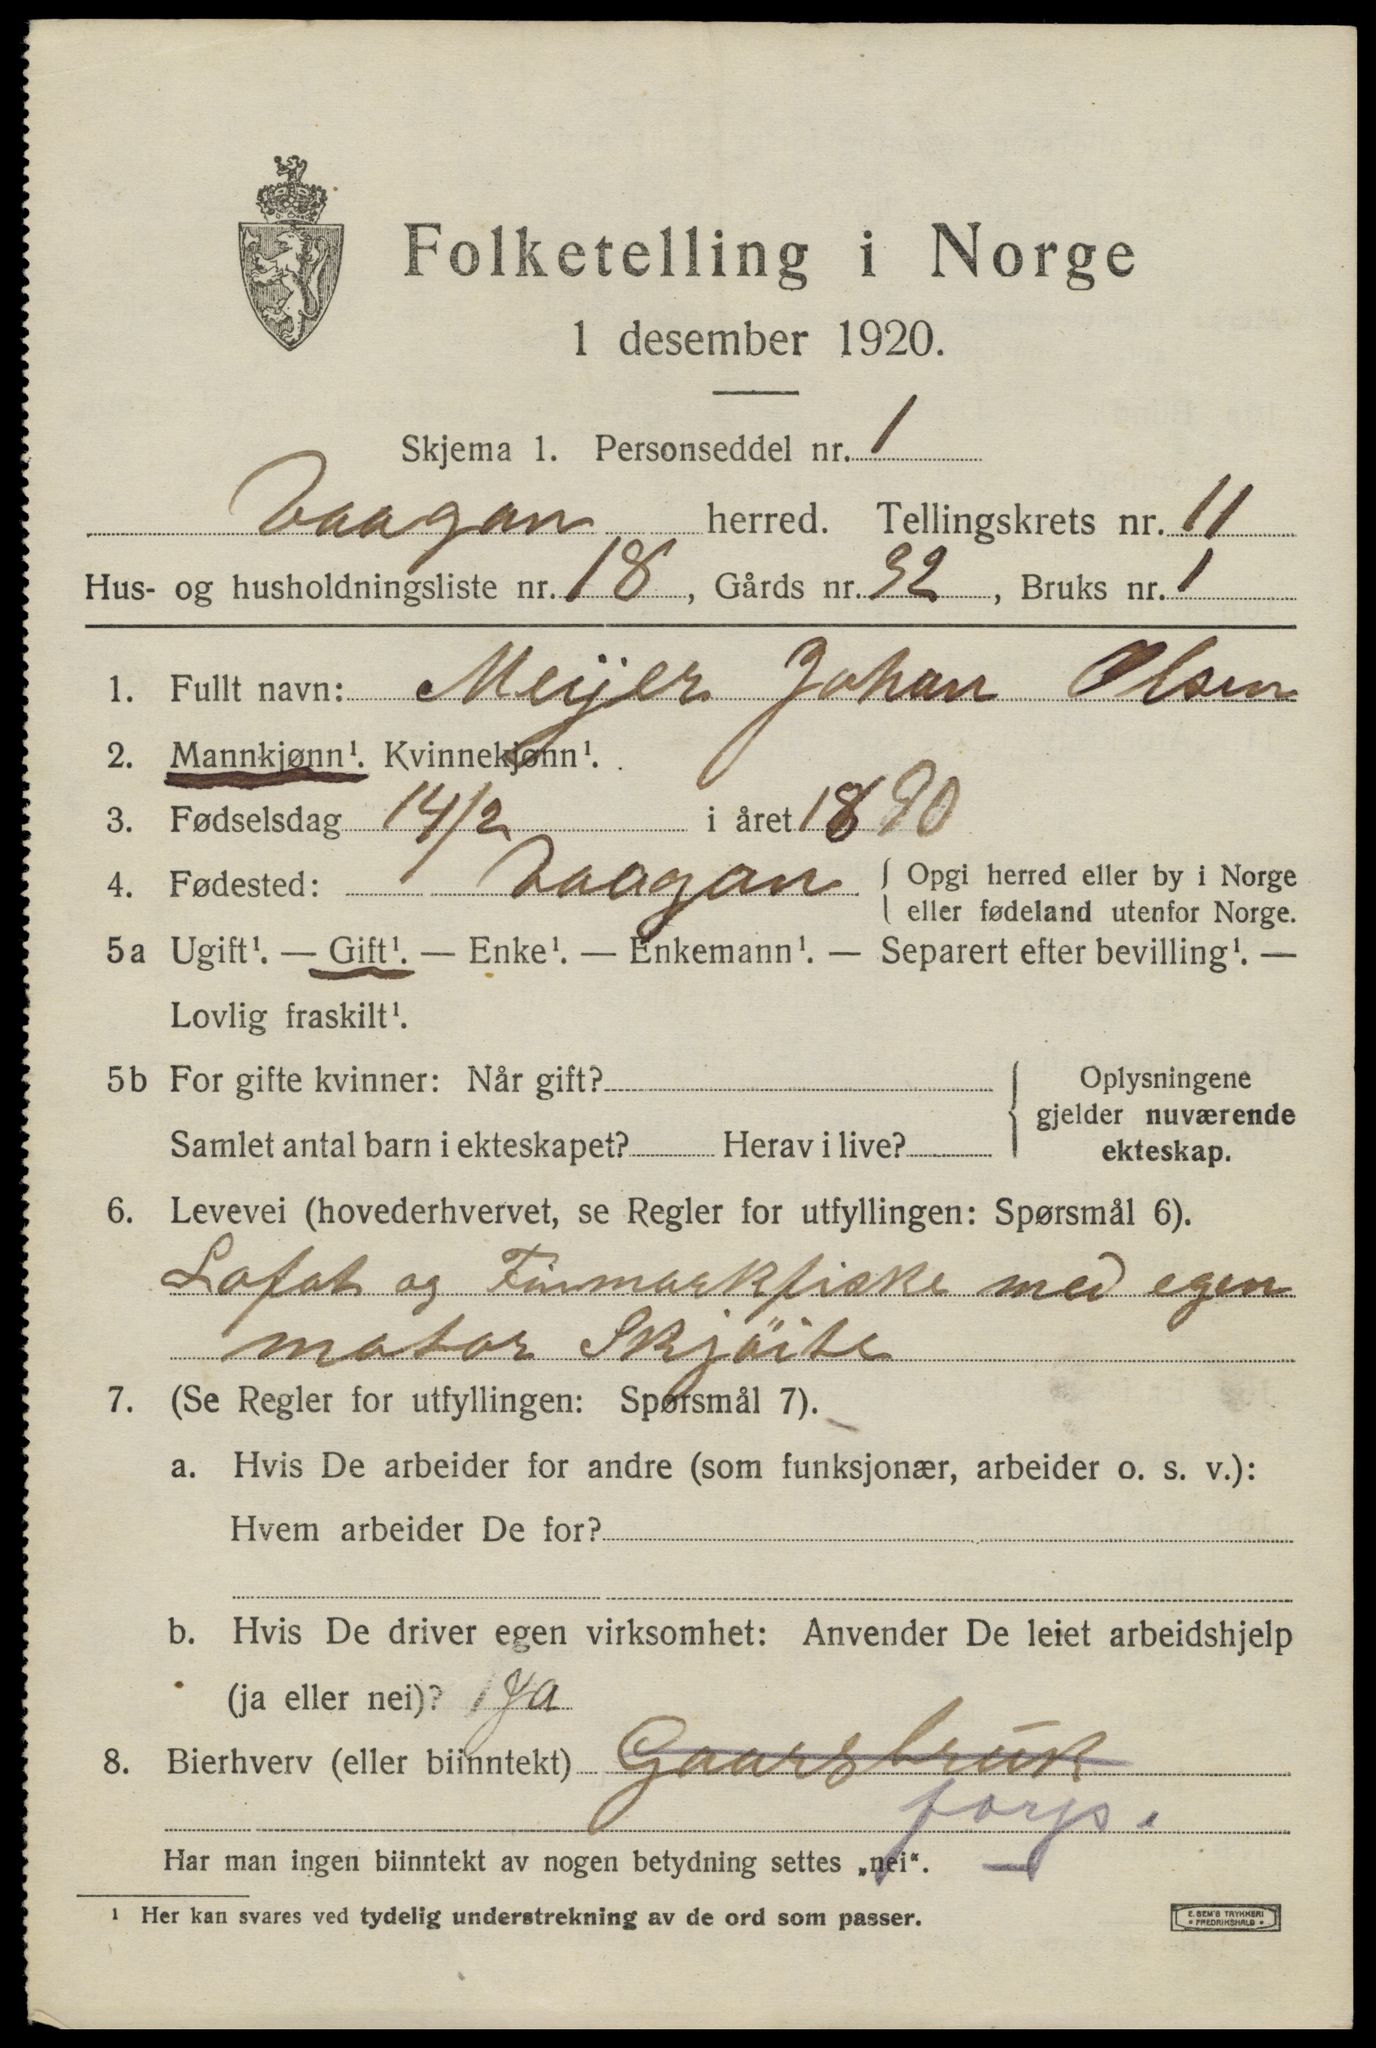 Folketelling i Norge
1 desember 1920.
Skjema 1. Personseddel nr. 1
Vaagan herred. Tellingskrets nr. 11
Hus- og husholdningsliste nr. 18, Gårds nr. 32, Bruks nr. 1
1. Fullt navn: Meijer Johan Olsen
2. Mannkjønn¹. Kvinnekjønn¹.
3. Fødselsdag 14/2 i året 1890
4. Fødested: Vaagan { Opgi herred eller by i Norge
eller fødeland utenfor Norge.
5a Ugift¹. — Gift¹. — Enke¹. — Enkemann¹. — Separert efter bevilling¹. —
Lovlig fraskilt¹.
5b For gifte kvinner: Når gift? { Oplysningene
gjelder nuværende
Samlet antal barn i ekteskapet? Herav i live? ekteskap.
6. Levevei (hovederhvervet, se Regler for utfyllingen: Spørsmål 6).
Lofot og Finmarkfiske med egen
motor Skjöite
7. (Se Regler for utfyllingen: Spørsmål 7).
a. Hvis De arbeider for andre (som funksjonær, arbeider o. s. v.):
Hvem arbeider De for?
b. Hvis De driver egen virksomhet: Anvender De leiet arbeidshjelp
(ja eller nei)? Ja
8. Bierhverv (eller biinntekt) Gaardsbruk
forp.
Har man ingen biinntekt av nogen betydning settes „nei“.
¹ Her kan svares ved tydelig understrekning av de ord som passer.
E. SEM'S TRYKKERI
• FREDRIKSHALD •